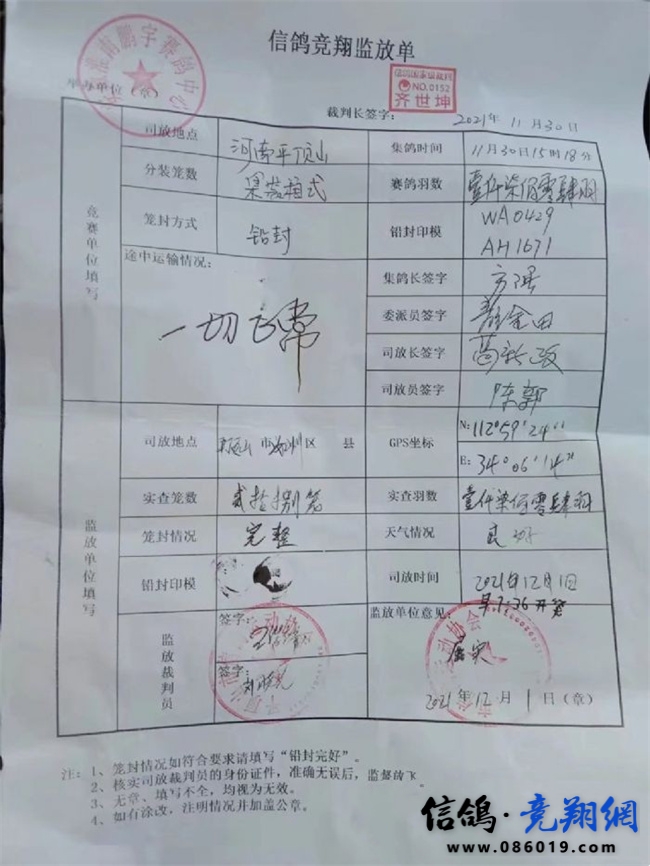 信鸽竞翔监放单
淮南鹏宇赛鸽中心
举办单位（章）
信鸽国家级裁判
NO.0152
齐世坤
裁判长签字：
2021年11月30日
竞赛单位填写
司放地点 河南平顶山 集鸽时间 11月30日15时18分
分装笼数 集装箱式 赛鸽羽数 壹仟柒佰零肆羽
笼封方式 铅封 铅封印模 WA0429
AH1671
途中运输情况： 一切正常
集鸽长签字
委派员签字
司放长签字
司放员签字 陈郭
监放单位填写
司放地点 平顶山市汝州区 县 GPS坐标 N:112°59'24"
E:34°06'14"
实查笼数 贰拾捌笼 实查羽数 壹仟柒佰零肆羽
笼封情况 完整 天气情况 良好
铅封印模 司放时间 2021年12月1日
早7:36开笼
监放裁判员 签字：
签字：
监放单位意见： 属实
2021年12月1日（章）
注：1、笼封情况如符合要求请填写“铅封完好”。
2、核实司放裁判员的身份证件，准确无误后，监督放飞。
3、无章、填写不全，均视为无效。
4、如有涂改，注明情况并加盖公章。
信鸽·竞翔網
www.086019.com